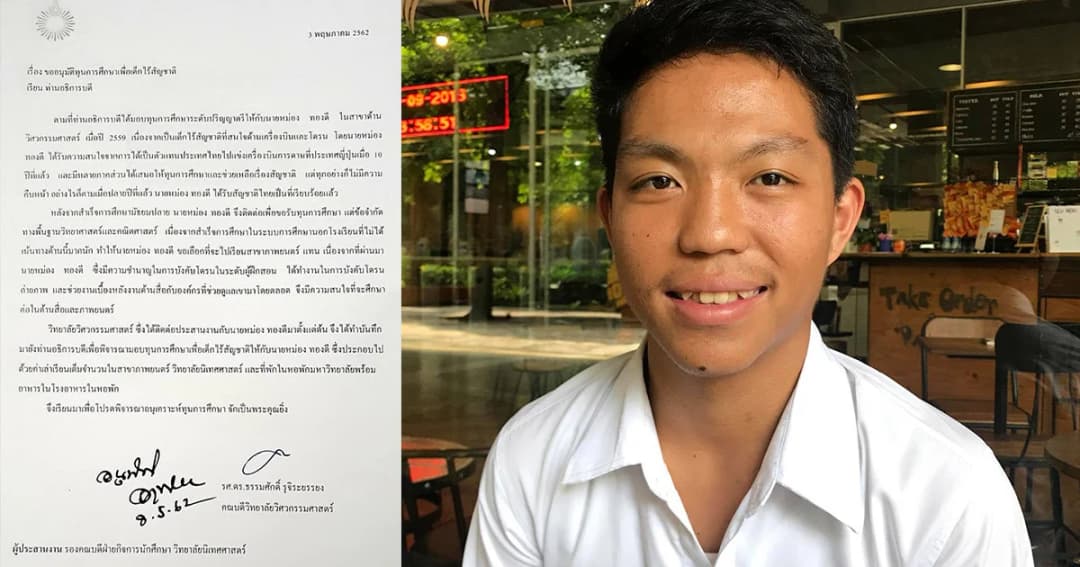 3 พฤษภาคม 2562
เรื่อง ขออนุมัติทุนการศึกษาเพื่อเด็กไร้สัญชาติ
เรียน ท่านอธิการบดี
ตามที่ท่านอธิการบดีได้มอบทุนการศึกษาระดับปริญญาตรีให้กับนายหม่อง ทองดี ในสาขาด้าน
วิศวกรรมศาสตร์ เมื่อปี 2559 เนื่องจากเป็นเด็กไร้สัญชาติที่สนใจด้านเครื่องบินและโดรน โดยนายหม่อง
ทองดี ได้รับความสนใจจากการได้เป็นตัวแทนประเทศไทยไปแข่งเครื่องบินกระดาษที่ประเทศญี่ปุ่นเมื่อ 10
ปีที่แล้ว และมีหลายภาคส่วนได้เสนอให้ทุนการศึกษาและช่วยเหลือเรื่องสัญชาติ แต่ทุกอย่างก็ไม่มีความ
คืบหน้า อย่างไรก็ตามเมื่อปลายปีที่แล้ว นายหม่อง ทองดี ได้รับสัญชาติไทยเป็นที่เรียบร้อยแล้ว
หลังจากสำเร็จการศึกษามัธยมปลาย นายหม่อง ทองดี จึงติดต่อเพื่อขอรับทุนการศึกษา แต่ข้อจำกัด
ทางพื้นฐานวิทยาศาสตร์และคณิตศาสตร์ เนื่องจากสำเร็จการศึกษาในระบบการศึกษานอกโรงเรียนที่ไม่ได้
เน้นทางด้านนี้มากนัก ทำให้นายหม่อง ทองดี ขอเลือกที่จะไปเรียนสาขาภาพยนตร์ แทน เนื่องจากที่ผ่านมา
นายหม่อง ทองดี ซึ่งมีความชำนาญในการบังคับโดรนในระดับผู้ฝึกสอน ได้ทำงานในการบังคับโดรน
ถ่ายภาพ และช่วยงานเบื้องหลังงานด้านสื่อกับองค์กรที่ช่วยดูแลเขามาโดยตลอด จึงมีความสนใจที่จะศึกษา
ต่อในด้านสื่อและภาพยนตร์
วิทยาลัยวิศวกรรมศาสตร์ ซึ่งได้ติดต่อประสานงานกับนายหม่อง ทองดีมาตั้งแต่ต้น จึงได้ทำบันทึก
มายังท่านอธิการบดีเพื่อพิจารณามอบทุนการศึกษาเพื่อเด็กไร้สัญชาติให้กับนายหม่อง ทองดี ซึ่งประกอบไป
ด้วยค่าเล่าเรียนเต็มจำนวนในสาขาภาพยนตร์ วิทยาลัยนิเทศศาสตร์ และที่พักในหอพักมหาวิทยาลัยพร้อม
อาหารในโรงอาหารในหอพัก
จึงเรียนมาเพื่อโปรดพิจารณาอนุเคราะห์ทุนการศึกษา จักเป็นพระคุณยิ่ง
8.5.62
รศ.ดร.ธรรมศักดิ์ รุจิระยรรยง
คณบดีวิทยาลัยวิศวกรรมศาสตร์
ผู้ประสานงาน รองคณบดีฝ่ายกิจการนักศึกษา วิทยาลัยนิเทศศาสตร์
Take Order